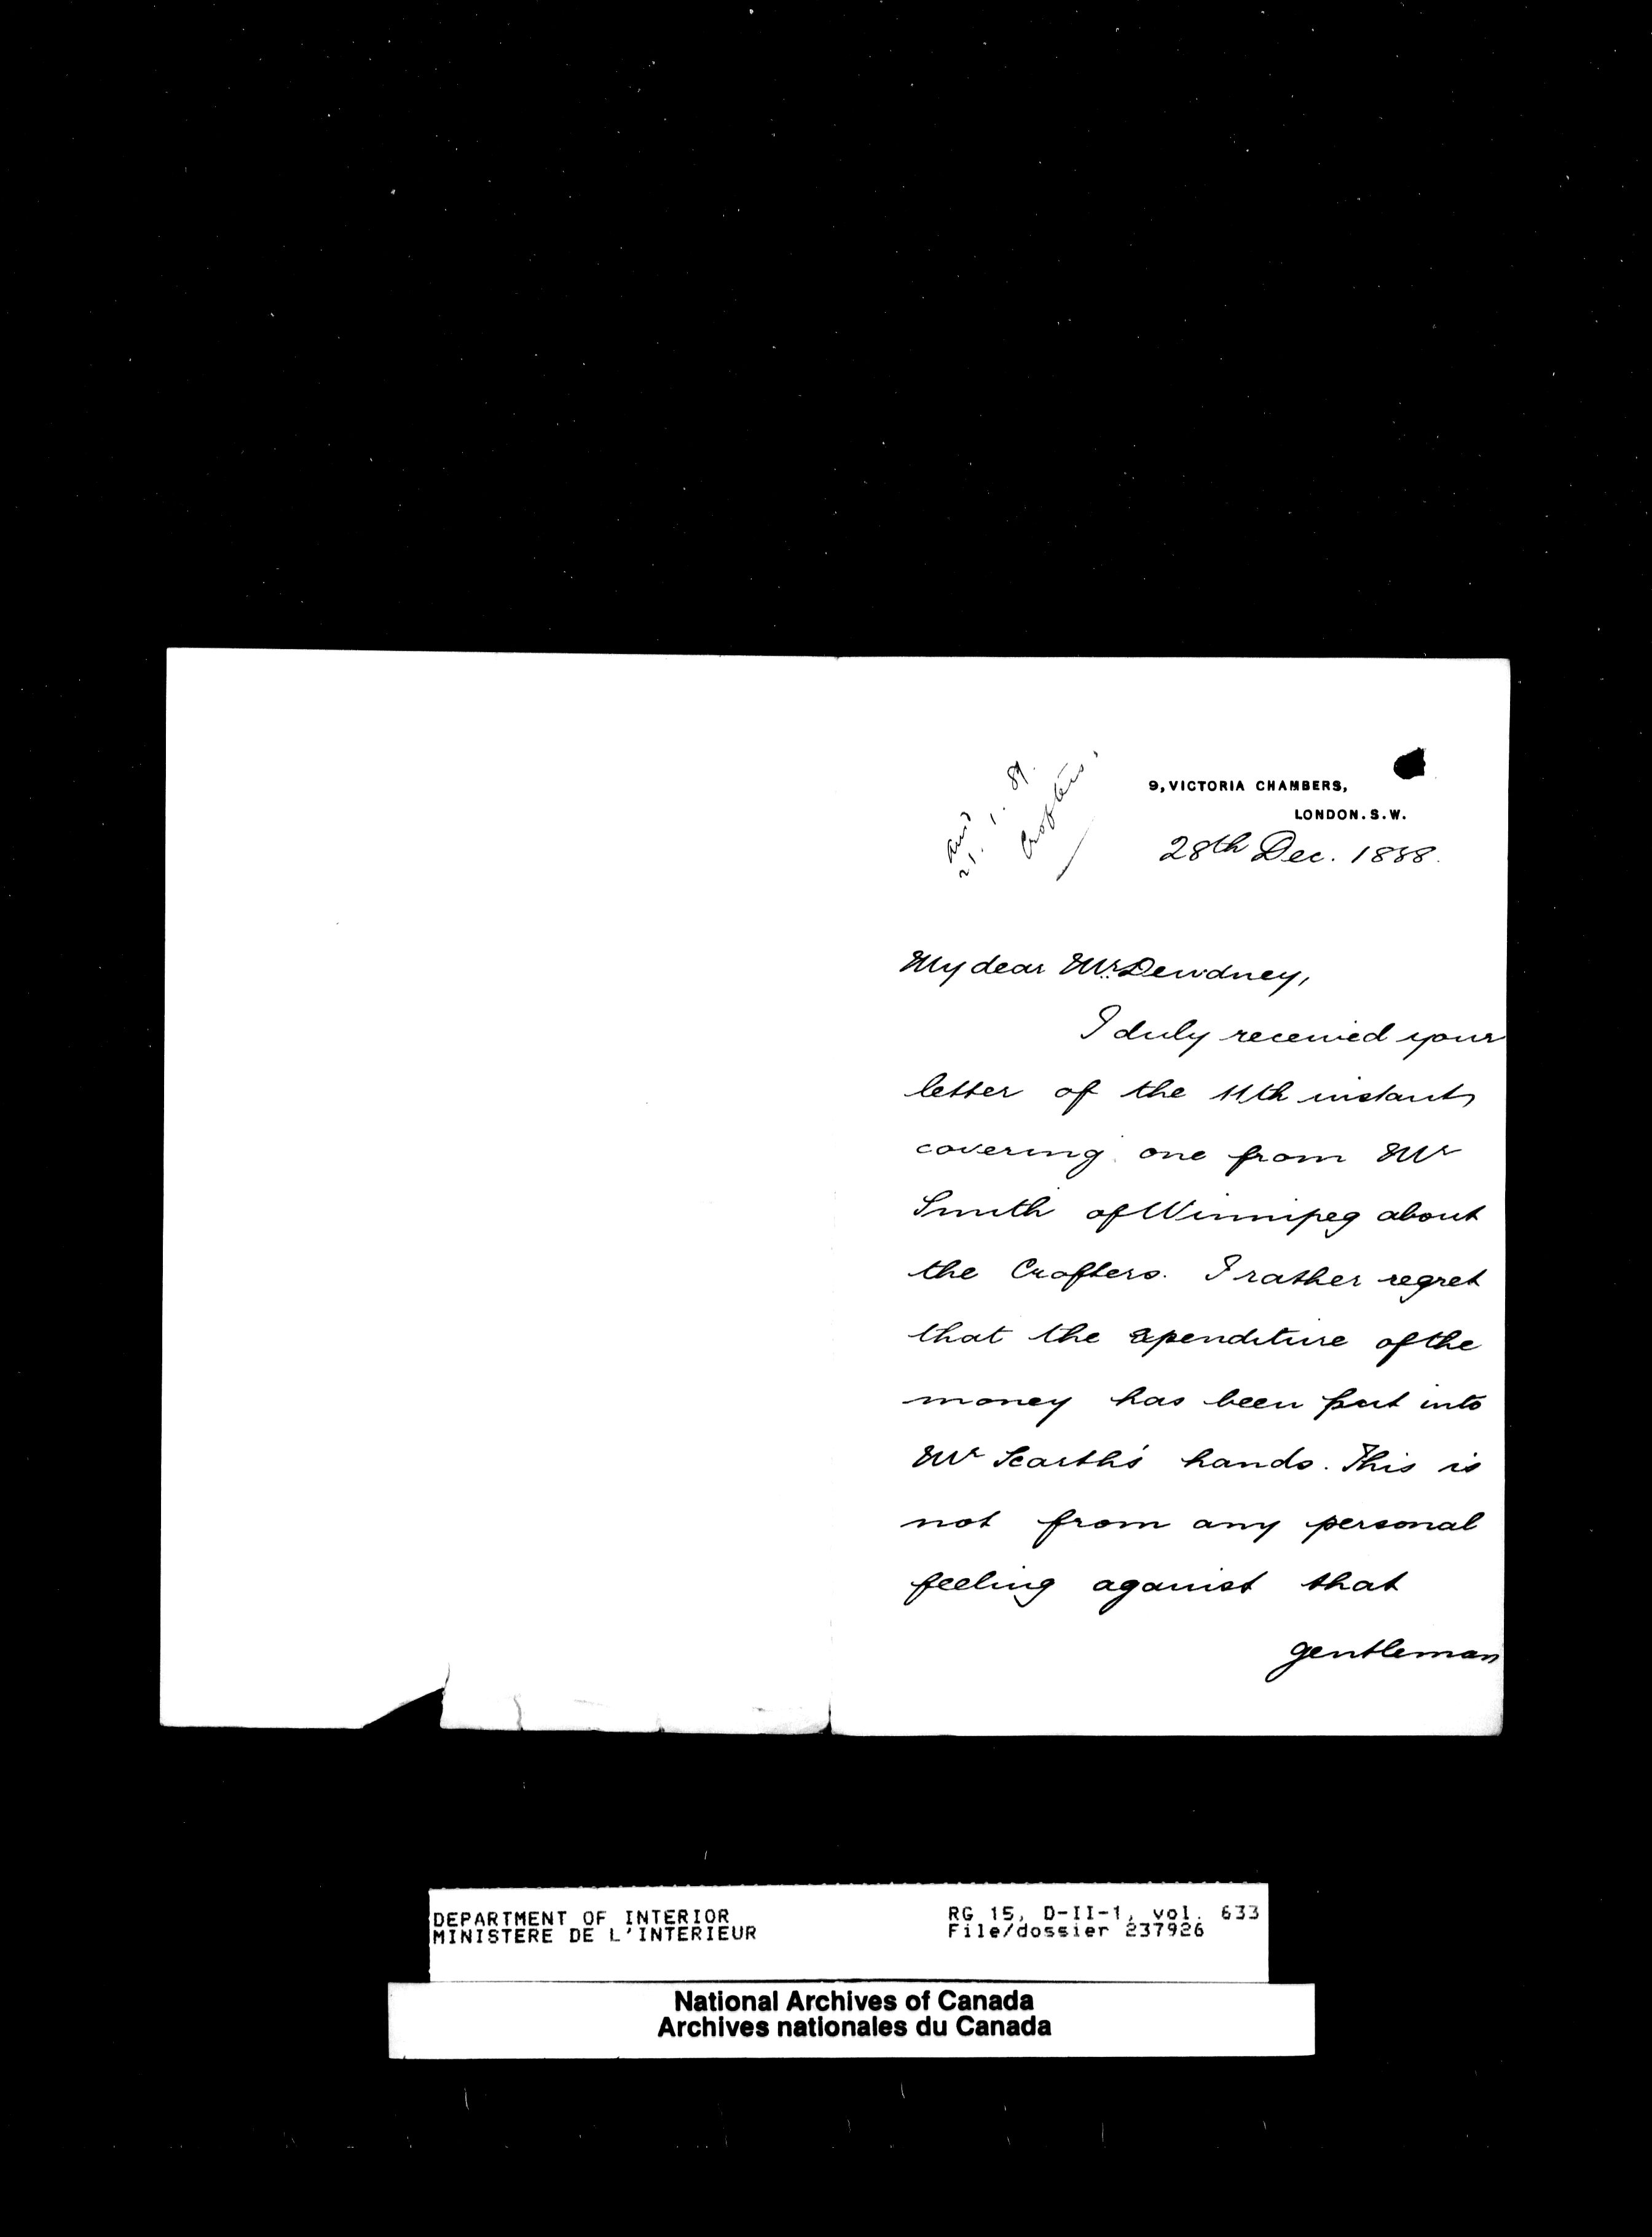 9, VICTORIA CHAMBERS,
LONDON. S. W.
28th Dec. 1888.
21. 1. 89.
Crofters.
My dear Mr. Dewdney,
I duly received your
letter of the 11th instant,
covering one from Mr
Smith of Winnipeg about
the Crofters. I rather regret
that the expenditure of the
money has been put into
Mr Scarth's hands. This is
not from any personal
feeling against that
gentleman
DEPARTMENT OF INTERIOR
MINISTERE DE L'INTERIEUR
RG 15, D-II-1, vol. 633
File/dossier 237926
National Archives of Canada
Archives nationales du Canada